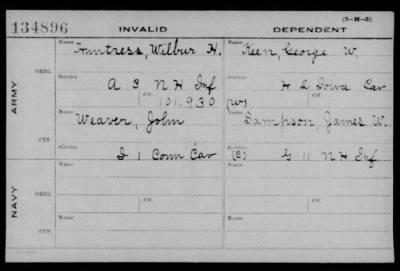 (3-H-3)
134896 INVALID DEPENDENT
Name Name
Huntress, Wilbur H. Keen, George W.
ORIG. Service Service
A 3 N H Inf H 2 Iowa Cav
Ctf. 101,930 (W) Ctf.
ARMY
Name Name
Weaver, John Sampson, James W.
CTF. Service Service
I 1 Conn Cav (C) G 11 N H Inf
Name Name
ORIG.
Ctf. Ctf.
NAVY
Name Name
CTF.
Ctf. Ctf.